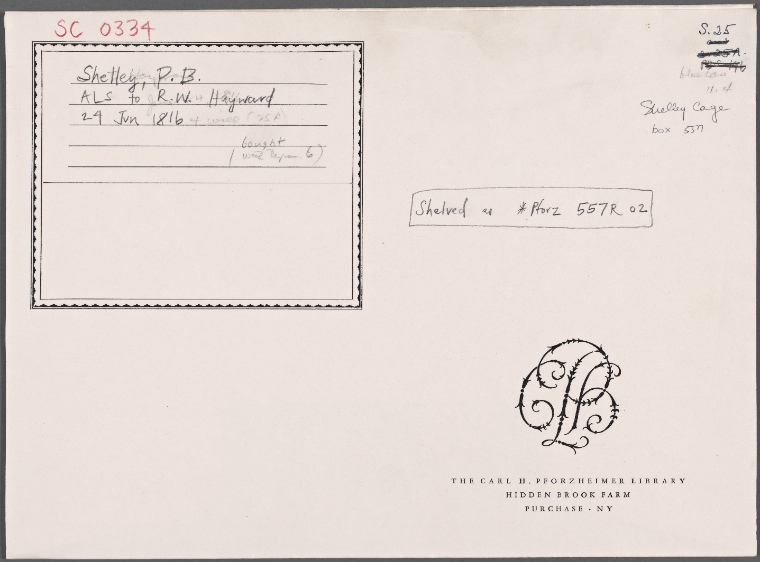 SC 0334
Shelley, P.B.
ALS to R.W. Hayward
24 Jun 1816
bought
6)
S.25
Shelley Cage
box 557
Shelved as *Pforz 557R 02
THE CARL H. PFORZHEIMER LIBRARY
HIDDEN BROOK FARM
PURCHASE · NY